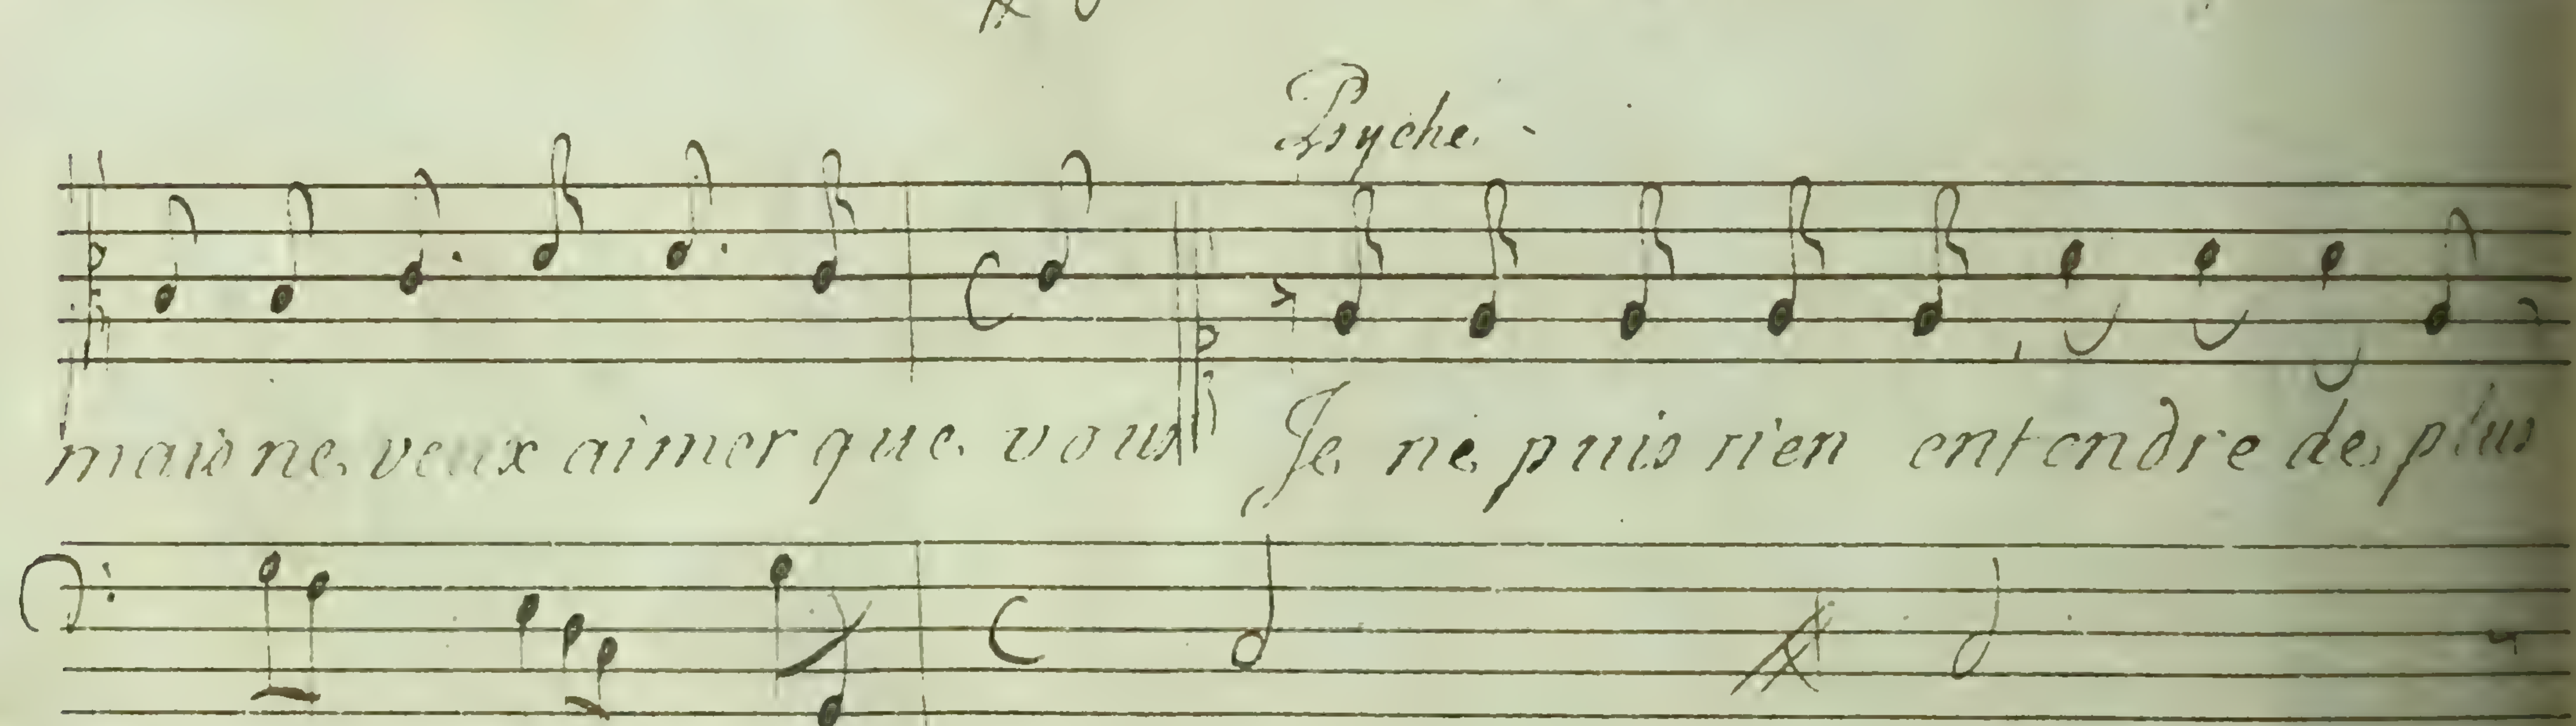 Psyche.
mais ne veux aimer que vous Je ne puis rien entendre de plus